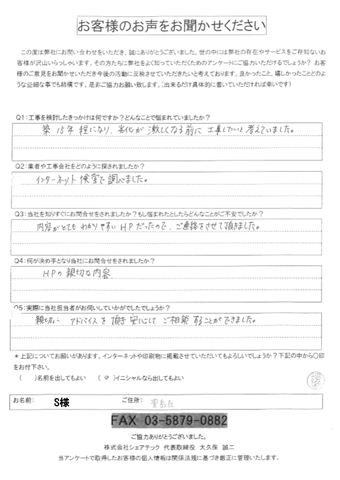 お客様のお声をお聞かせください
この度は弊社にお問い合わせをいただき、誠にありがとうございました。世の中には弊社の存在やサービスをご存知ないお
客様が沢山いらっしゃいます。その方たちに弊社をよく知っていただくためのアンケートにご協力いただけるでしょうか？お
客様のご意見をお聞かせいただき今後の活動に反映させていただきたいと考えております。良かったこと、嬉しかったことどのよ
うな些細な事でも結構です。是非ご協力お願い致します。（出来るだけ具体的に書いていただければ幸いです）
Q1：工事を検討したきっかけは何ですか？どんなことで悩まれていましたか？
築15年程になり、劣化が激しくなる前に工事したいと考えていました。
Q2：業者や工事会社をどのように探されましたか？
インターネット検索で調べました。
Q3：当社を知りすぐにお問合せをされましたか？もし悩まれたとしたらどんなことがご不安でしたか？
内容がとてもわかりやすいHPだったので、ご連絡させて頂きました。
Q4：何が決め手となり当社にお問合せをされましたか？
HPの親切な内容
Q5：実際に当社担当者がお伺いしていかがでしたでしょうか？
親切にアドバイスを頂き安心してご相談することができました。
＊上記についてお願いがあります。インターネットや印刷物に掲載させていただいてもよろしいでしょうか？下記の中から〇印
をお付下さい。
（　）名前を出してもよい　（○）イニシャルなら出してもよい
お名前：　S様　ご住所：
FAX 03-5879-0882
ご協力ありがとうございました。
株式会社シェアテック　代表取締役　大久保 誠二
当アンケートで取得したお客様の個人情報は関係法規に基づき厳正に管理いたします。